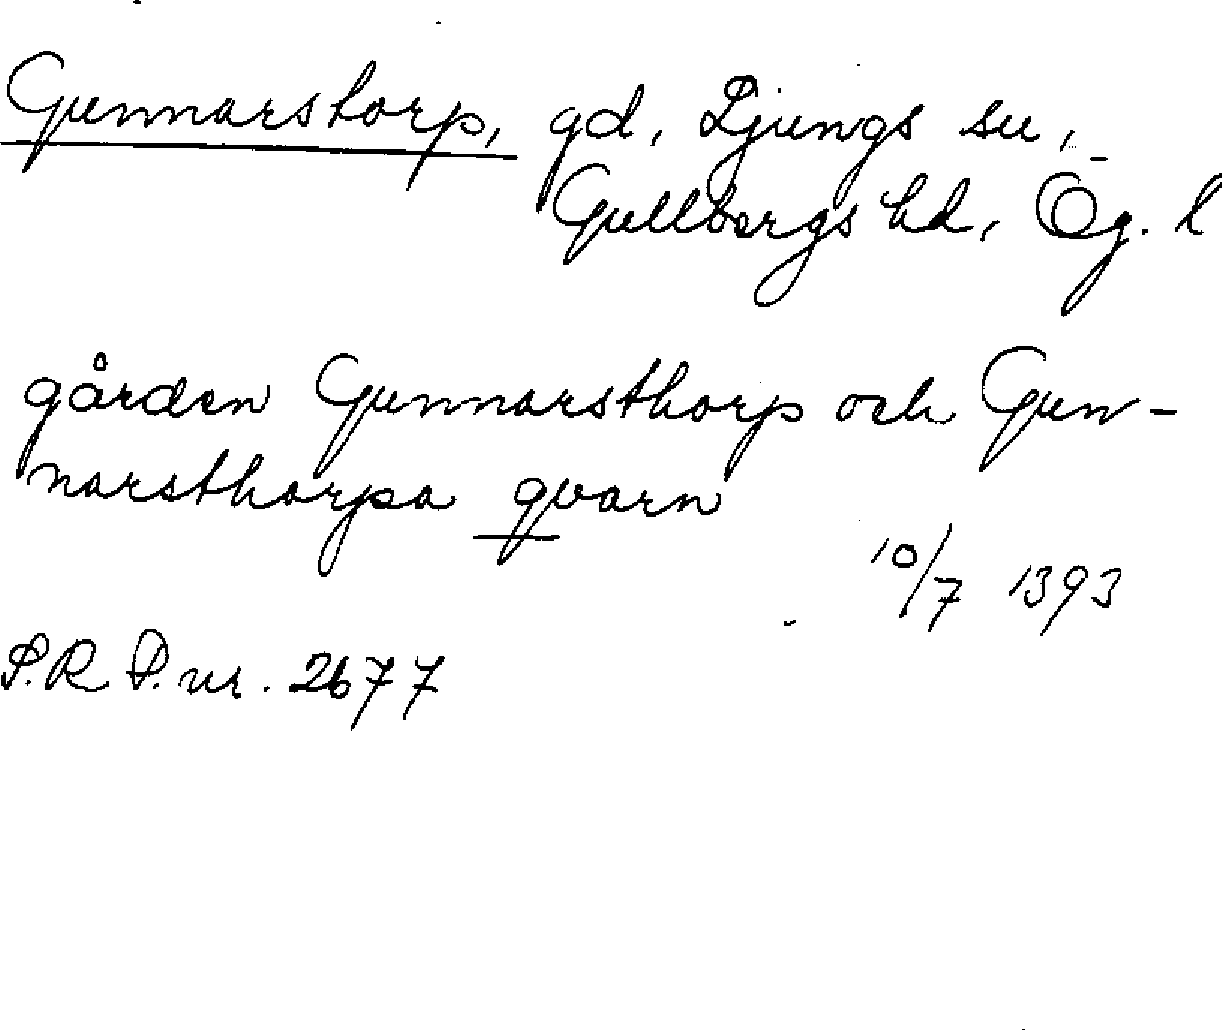 Gunnarstorp, gd, Ljungs sn,
Gullbergs hd, Ög. l
gården Gunnarsthorp och Gun-
narsthorpa qvarn
10/7 1393
S.R.P. nr. 2677